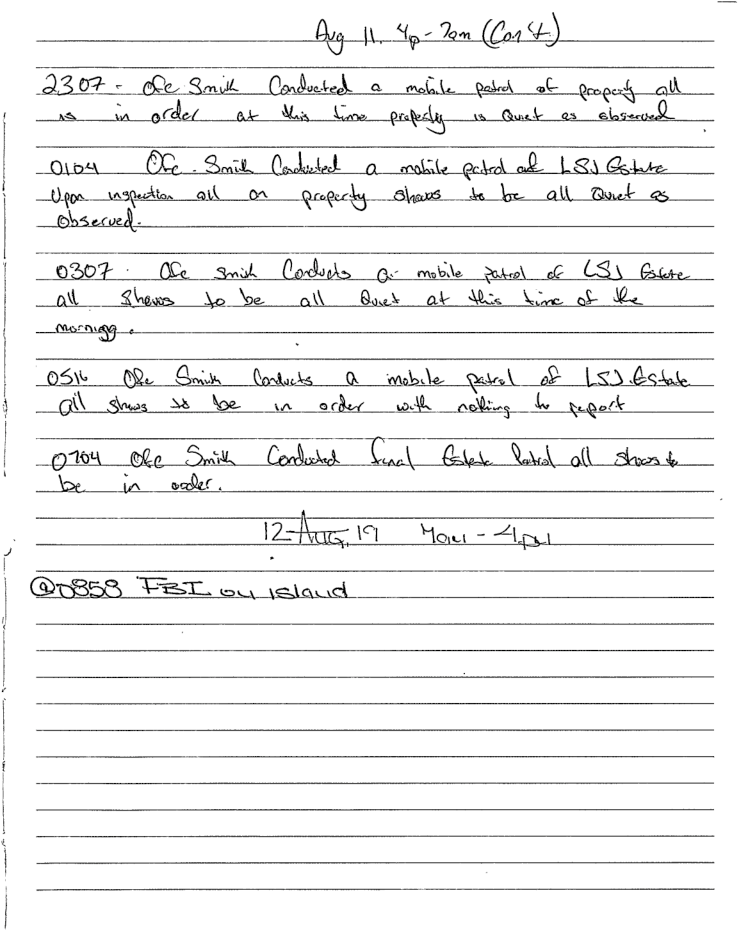 Aug 11. 4p - 7am (Con't)
2307 - Ofc Smith Conducted a mobile patrol of property all
is in order at this time property is Quiet as observed
0104 Ofc. Smith Conducted a mobile patrol of LSJ Estate
Upon inspection all on property shows to be all Quiet as
Observed.
0307. Ofc Smith Conducts a mobile patrol of LSJ Estate
all Shows to be all Quiet at this time of the
morning.
0516 Ofc Smith Conducts a mobile patrol of LSJ Estate
all shows to be in order with nothing to report
0704 Ofc Smith Conducted final Estate Patrol all shows to
be in order.
12-AUG, 19 - 4pm
@0858 FBI on island